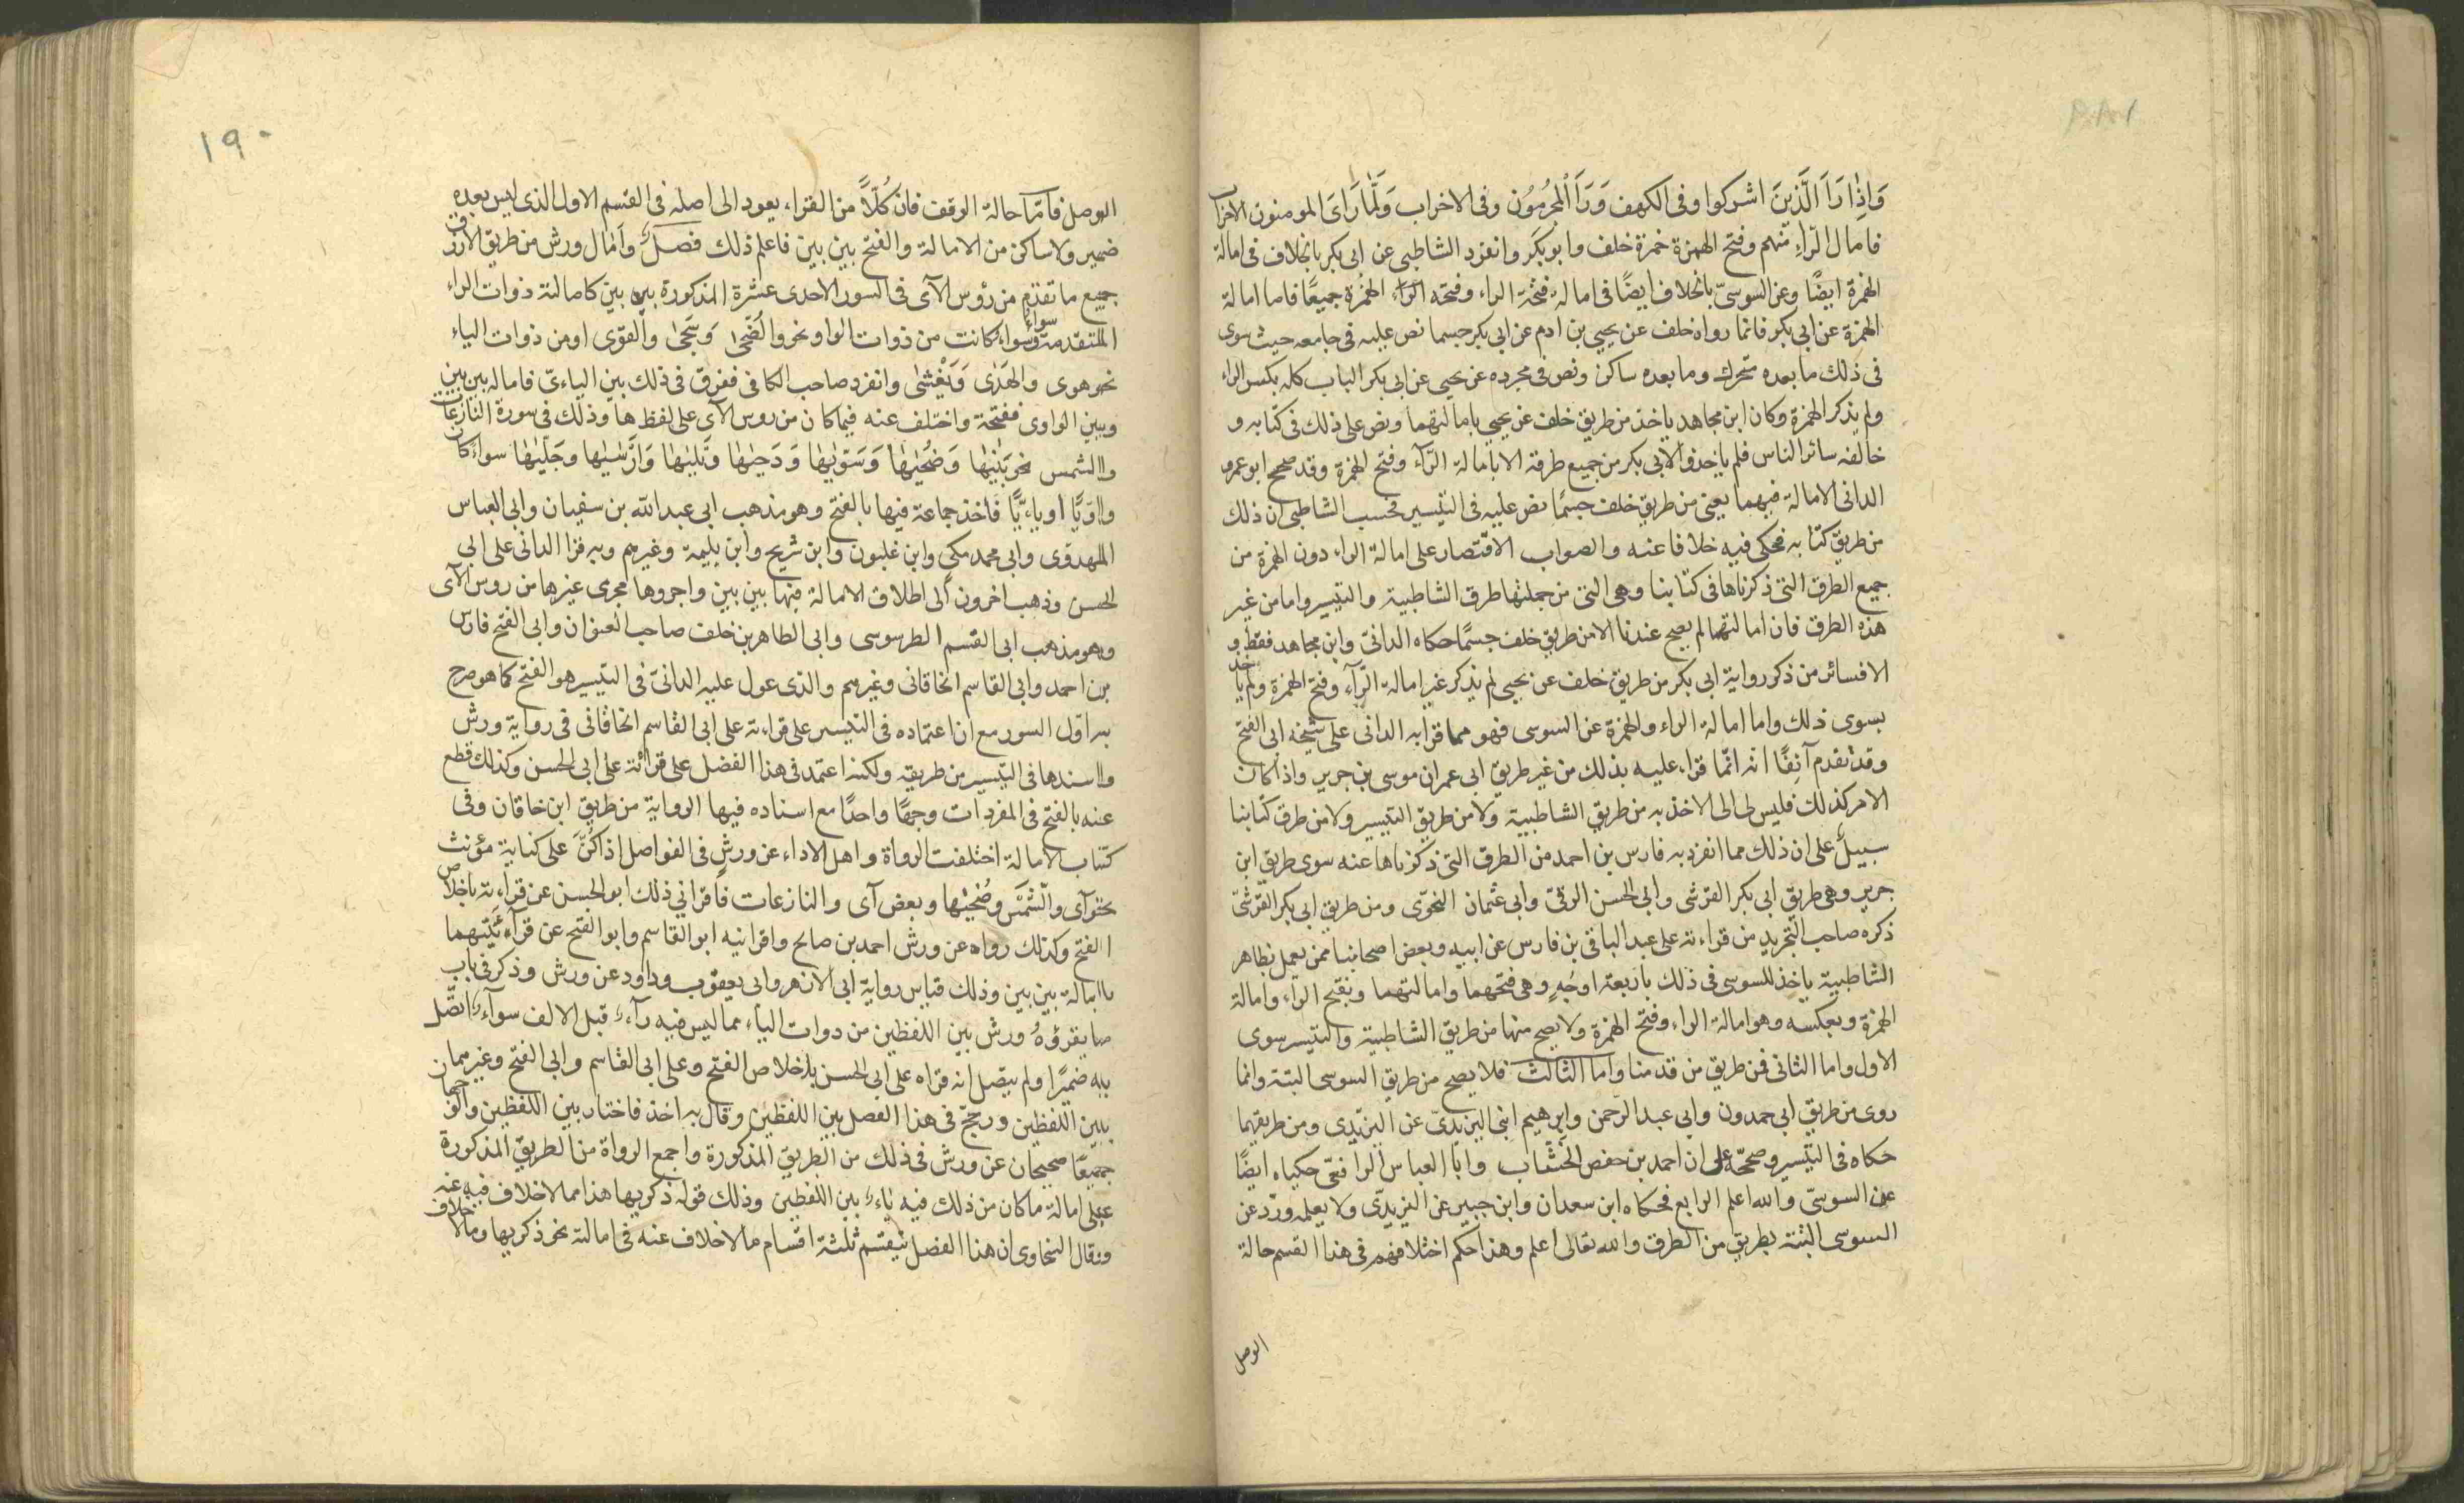 وَاِذَا رَاَ الَّذِينَ اشركوا وفى الكهف وَرَاَ الْمُجْرِمُوُن وفى الاحزاب وَلَمَّا رَاىَ المومنون الاحزاب
فامال الرّاء منهم وفتح الهمزة حمزة خلف وابو بكر وانفرد الشاطبى عن ابى بكر بالخلاف فى امالة
الهمزة ايضًا وعن السوسىّ بالخلاف ايضًا فى امالة فتحة الراء وفتحه الراء الهمزة جميعًا فاما امالة
الهمزة عن ابى بكر فانما رواه خلف عن يحيى بن ادم عن ابى بكر حسبما نص عليه فى جامعه حيث سوى
فى ذلك ما بعده متحرك وما بعده ساكن ونص فى مجرده عن يحيى عن ابى بكر الباب كله بكسر الراء
ولم يذكر الهمزة وكان ابن مجاهد ياخذ من طريق خلف عن يحيى بامالتهما ونص على ذلك فى كتابه و
خالفه سائر الناس فلم ياخذوا لابى بكر من جميع طرقه الا بامالة الرّآء وفتح الهمزة وقد صحح ابو عمرو
الدانى الامالة فيهما يعنى من طريق خلف حسبما نص عليه فى التيسير فحسب الشاطبى ان ذلك
من طريق كتابه فحكى فيه خلافا عنه والصواب الاقتصار على امالة الراء دون الهمزة من
جميع الطرق التى ذكرناها فى كتابنا وهى التى من جملتها طرق الشاطبية والتيسير واما من غير
هذه الطرق فان امالتهما لم يصح عندنا الا من طريق خلف حسبما حكاه الدانىّ وابن مجاهد فقط و
الا فسائر من ذكر رواية ابى بكر من طريق خلف عن يحيى لم يذكر غير امالة الرّآء وفتح الهمزة ولم ياخذ
بسوى ذلك واما امالة الراء والهمزة عن السوسى فهو مما قرا به الدانى على شيخه ابى الفتح
وقد تقدم آنِفًا انه انّما قراء عليه بذلك من غير طريق ابى عمران موسى بن جرير واذا كان
الامر كذلك فليس لى الى الاخذ به من طريق الشاطبية ولا من طريق التيسير ولا من طرق كتابنا
سبيلٌ على ان ذلك مما انفرد به فارس بن احمد من الطرق التى ذكرناها عنه سوى طريق ابن
جرير وهى طريق ابى بكر القرشى وابى الحسن الرقىّ وابى عثمان النحوّى ومن طريق ابى بكر القرشىّ
ذكره صاحب التجريد من قراءته على عبد الباقى بن فارس عن ابيه وبعض اصحابنا ممن يعمل بظاهر
الشاطبية ياخذ للسوسى فى ذلك باربعة اوجُهٍ وهى فتحهما وامالتهما وبفتح الراء وامالة
الهمزة وبعكسه وهو امالة الراء وفتح الهمزة ولا يصح منها من طريق الشاطبية والتيسير سوى
الاول واما الثانى فمن طريق من قدمنا واما الثالث فلا يصح من طريق السوسى البتة وانما
روى من طريق ابى حمدون وابى عبد الرحمن وابرهيم ابنى اليزيدىّ عن اليزيدى ومن طريقيهما
حكاه فى التيسير وصحّحه على ان احمد بن حفص الخشّاب وابا العباس الرافقىّ حكياه ايضًا
عن السوسىّ والله اعلم الرابع فحكاه ابن سعدان وابن جبير عن اليزيدّى ولا يعلمه ورد عن
السوسى البتة بطريق من الطرق والله تعالى اعلم وهذا حكم اختلافهم فى هذا القسم حالة
الوصل
١٩٠
الوصل فامّا حالة الوقف فان كُلّاً من القراء يعود الى اصله فى القسم الاول الذى ليس بعده
ضمير ولا ساكن من الامالة والفتح بين بين فاعلم ذلك فصلٌ وَاَمال ورش من طريق الازرق
جميع ما تقدم من رؤس الآى فى السور الاحدى عشرة المذكورة بين بين كامالته ذوات الراء
المتقدمة وسواءٌ كانت من ذوات الواو نحو والضُّحىٰ وَسَجىٰ والقوٰى او من ذوات الياء
نحو هوى والهدٰى وَيَغْشىٰ وانفرد صاحب الكافى ففرق فى ذلك بين اليائىّ فاماله بين بين
وبين الواوى ففتحه واختلف عنه فيما كان من روس الآى على لفظ ها وذلك فى سورة النازعات
والشمس نحو بَنٰيهٰا وَضُحٰيهٰا وَسَوّٰيهٰا وَدَحٰيهٰا وتَلٰيهٰا وَاَرْسٰيهٰا وجَلّٰيهٰا سواءٌ كان
واوِيًّا او يائِيًّا فاخذ جماعة فيها بالفتح وهو مذهب ابى عبد الله بن سفيان وابى العباس
المهدوى وابى محمد مكى وابن غلبون وابن شريح وابن بليمة وغيرهم وبه قرا الدانى على ابى
الحسن وذهب اخرون الى اطلاق الامالة فيها بين بين واجروها مجرى غيرها من روس الآى
وهو مذهب ابى القسم الطرسوسى وابى الطاهر بن خلف صاحب العنوان وابى الفتح فارس
بن احمد وابى القاسم الخاقانى وغيرهم والذى عول عليه الدانىّ فى التيسير هو الفتح كما هو صرح
به اوّل السور مع ان اعتماده فى التيسير على قراءته على ابى القاسم الخاقانى فى رواية ورش
واسندها فى التيسير من طريقه ولكنه اعتمد فى هذا الفصل على قرائته على ابى الحسن وكذلك قطع
عنه بالفتح فى المفردات وجهًا واحدًا مع اسناده فيها الرواية من طريق ابن خاقان وفى
كتاب الامالة اختلفت الرواة واهل الاداء عن ورشٍ فى الفواصل اذا كُنَّ على كناية مؤنث
نحو آى والشَّمْسِ وضُحٰيهٰا وبعض آى والنازعات فاقرانى ذلك ابو الحسن عن قراءته باخلاص
الفتح وكذلك رواه عن ورش احمد بن صالح واقرانيه ابو القاسم وابو الفتح عن قرآءتهما
بامالة بين بين وذلك قياس رواية ابى الازهر وابى يعقوب وداود عن ورش وذكر فى باب
ما يقرؤُهُ ورش بين اللفظين من ذوات الياء مما ليس فيه رآءٌ قبل الالف سوآءٌ اتّصل
به ضميرًا ولم يتصل انه قراه على ابى الحسن باخلاص الفتح وعلى ابى القاسم وابى الفتح وغيرهما
بين اللفظين ورجّح فى هذا الفصل بين اللفظين وقال به اخذ فاختار بين اللفظين والوجهان
جميعًا صحيحان عن ورش فى ذلك من الطريق المذكورة واجمع الرواة من الطريق المذكورة
على امالة ما كان من ذلك فيه راءٌ بين اللفظين وذلك قوله ذكريها هذا مما لا خلاف فيه عنه
وقال السخاوى ان هذا الفصل ينقسم ثلثة اقسام ما لا خلاف عنه فى امالته نحو ذكريها وما لا خلاف